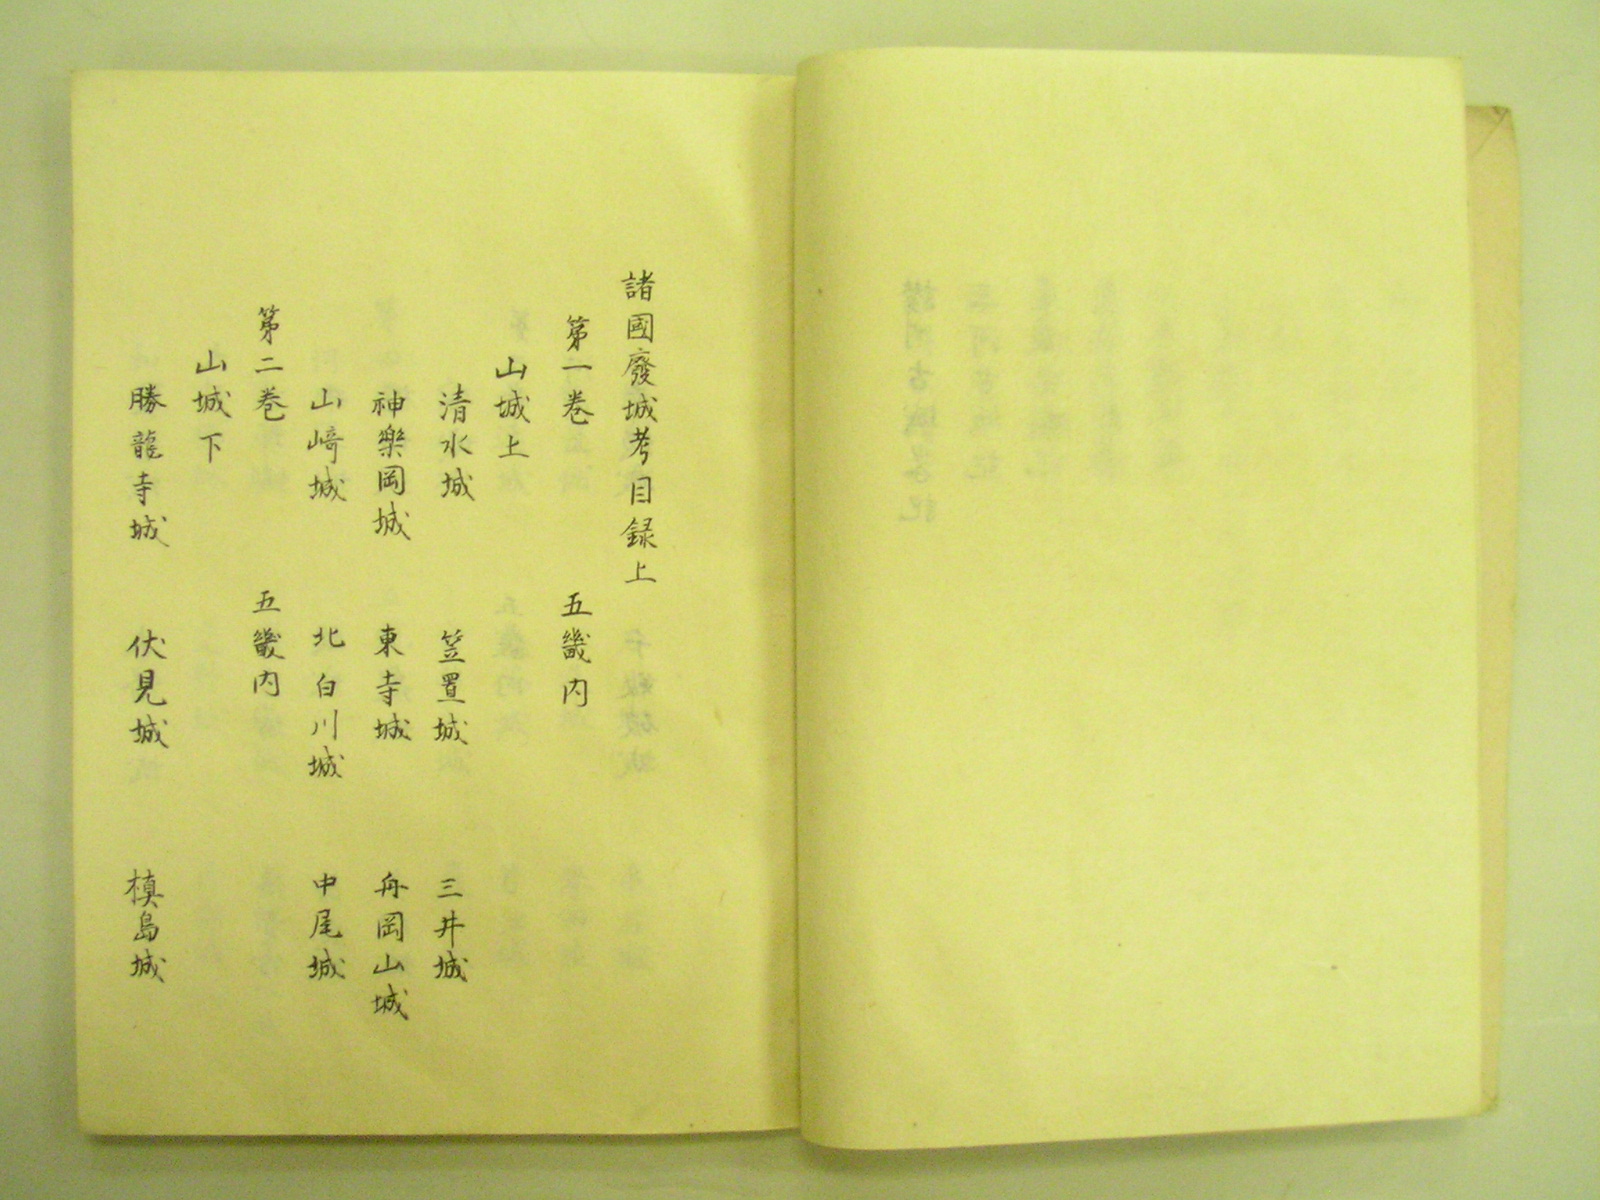 諸國廢城考目録上
第一巻　五畿内
山城上
清水城　笠置城　三井城
神樂岡城　東寺城　舟岡山城
山崎城　北白川城　中尾城
第二巻　五畿内
山城下
勝龍寺城　伏見城　槙島城